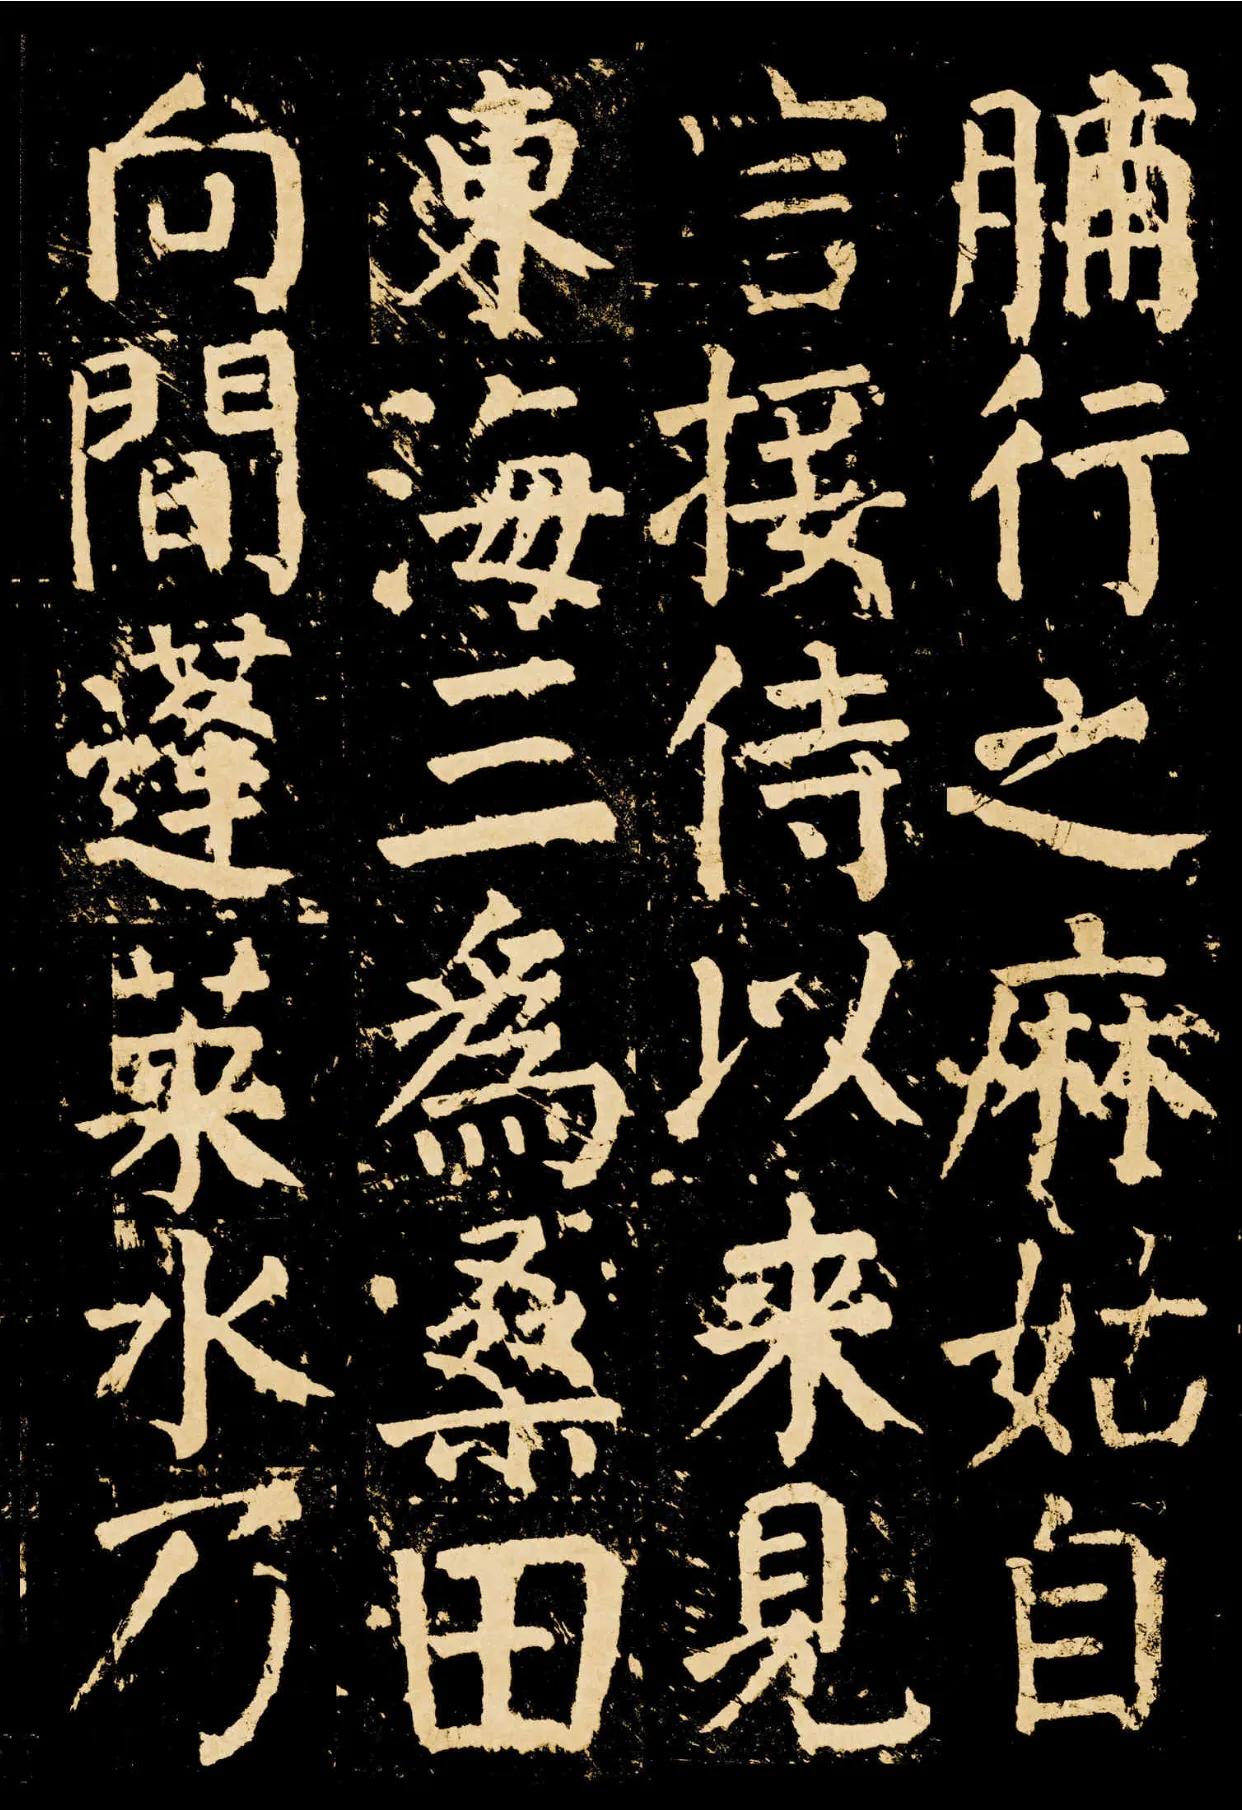 脯行之麻姑自
言接侍以来見
東海三為桑田
向間蓬莱水乃